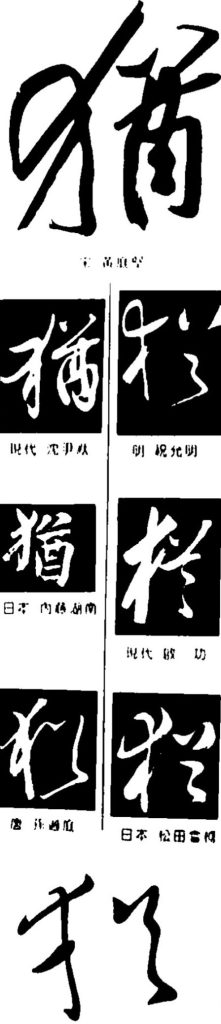 猶
宋 黃庭堅
猶 猶
現代 沈尹默 明 祝允明
猶
日本 內藤湖南
猶
現代 啟功
猶 猶
唐 孫過庭
日本 松田
猶